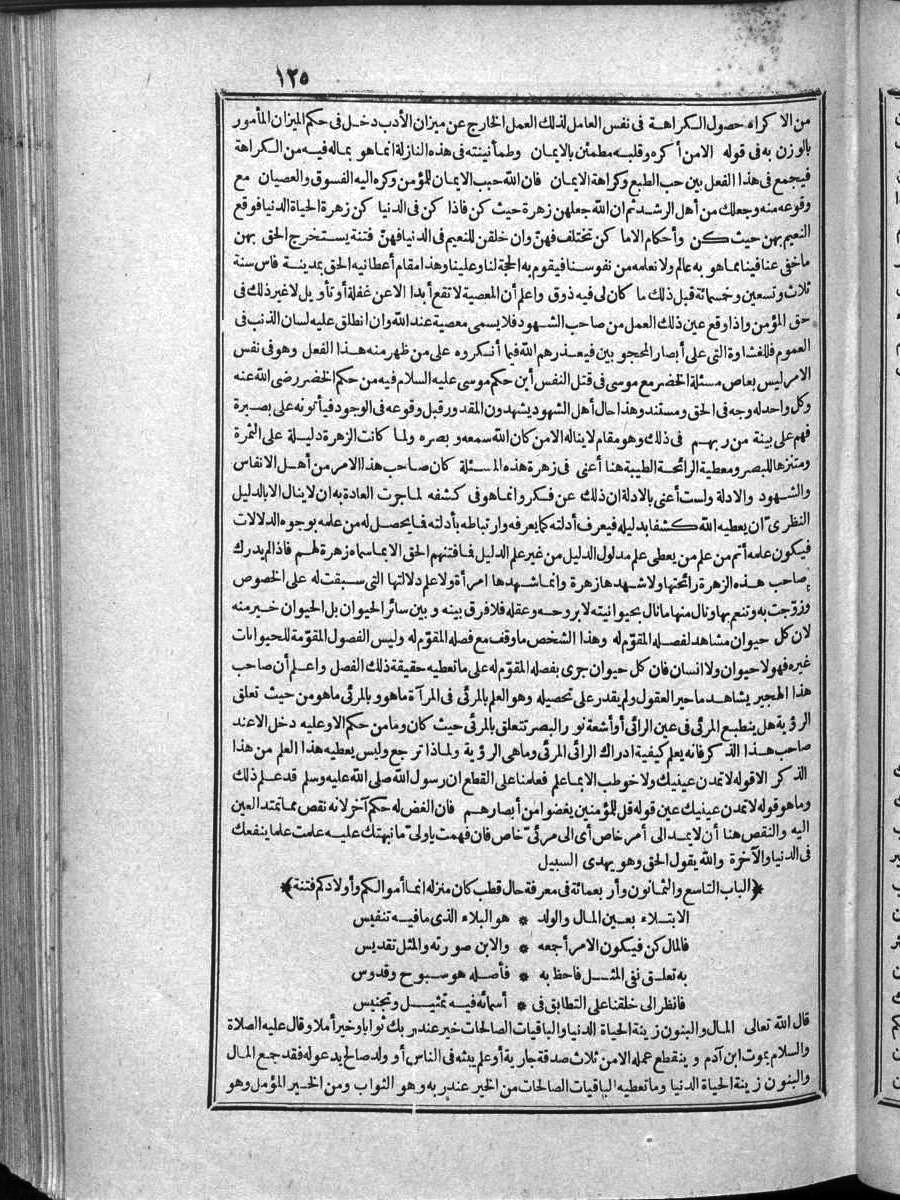 ١٢٥
من الاكراه حصول الكراهة فى نفس العامل لذلك العمل الخارج عن ميزان الأدب دخل فى حكم الميزان المأمور
بالوزن به فى قوله الا من أكره وقلبه مطمئن بالايمان وطمأنينته فى هذه النازلة انما هو بماله فيه من الكراهة
فيجمع فى هذا الفعل بين حب الطبع وكراهة الايمان فان الله حبب الايمان للمؤمن وكره اليه الفسوق والعصيان مع
وقوعه منه وجعلك من أهل الرشد ثم ان الله جعلهن زهرة حيث كن فاذا كن فى الدنيا كن زهرة الحياة الدنيا فوقع
النعيم بهن حيث كن وأحكام الاما كن تختلف فهنّ وان خلقن للنعيم فى الدنيا فهنّ فتنة يستخرج الحق بهن
ماخفى عنا فينا مما هو به عالم ولا نعلمه من نفوسنا فيقوم به الحجة لنا وعلينا وهذا مقام أعطانيه الحق بمدينة فاس سنة
ثلاث وتسعين وخمسمائة قبل ذلك ما كان لى فيه ذوق واعلم أن المعصية لا تقع أبدا الا عن غفلة أو تأويل لا غير ذلك فى
حق المؤمن واذا وقع عين ذلك العمل من صاحب الشهود فلا يسمى معصية عند الله وان انطلق عليه لسان الذنب فى
العموم فللغشاوة التى على أبصار المحجوبين فيعذرهم الله فيما أنكروه على من ظهر منه هذا الفعل وهو فى نفس
الامر ليس بعاص مسئلة الخضر مع موسى فى قتل النفس أين حكم موسى عليه السلام فيه من حكم الخضر رضى الله عنه
وكل واحد له وجه فى الحق ومستند وهذا حال أهل الشهود يشهدون المقدور قبل وقوعه فى الوجود فيأتونه على بصيرة
فهم على بينة من ربهم فى ذلك وهو مقام لا يناله الا من كان الله سمعه و بصره ولما كانت الزهرة دليلة على الثمرة
ومتنزها للبصر ومعطية الرائحة الطيبة هنا أعنى فى زهرة هذه المسئلة كان صاحب هذا الامر من أهل الانفاس
والشهود والادلة ولست أعنى بالادلة ان ذلك عن فكر وانما هو فى كشفه لما جرت العادة به ان لا ينال الا بالدليل
النظرىّ ان يعطيه الله كشفا بدليله فيعرف أدلته كما يعرفه وارتباطه بأدلته فما يحصل له من علمه بوجوه الدلالات
فيكون علمه أتم من علم من يعطى علم مدلول الدليل من غير علم الدليل فما فتنهم الحق الا بما سماه زهرة لهم فاذا لم يدرك
صاحب هذه الزهرة رائحتها ولا شهدها زهرة وانما شهدها امرأة ولا علم دلالتها التى سبقت له على الخصوص
وزوّجت به وتنعم بها ونال منها ما نال بحيوانيته لا بروحه وعقله فلا فرق بينه و بين سائر الحيوان بل الحيوان خير منه
لان كل حيوان مشاهد لفصله المقوّم له وهذا الشخص ما وقف مع فصله المقوّم له وليس الفصول المقوّمة للحيوانات
غيره فهو لا حيوان ولا انسان فان كل حيوان جرى بفصله المقوّم له على ما تعطيه حقيقة ذلك الفصل واعلم أن صاحب
هذا الهجير يشاهد ما حير العقول ولم يقدر على تحصيله وهو العلم بالمرئى فى المرآة ما هو و بالمرئى ما هو من حيث تعلق
الرؤية هل ينطبع المرئى فى عين الرائى أو أشعة نور البصر تتعلق بالمرئى حيث كان وما من حكم الا وعليه دخل الا عند
صاحب هذا الذكر فانه يعلم كيفية ادراك الرائى المرئى وما هى الرؤية ولماذا ترجع وليس يعطيه هذا العلم من هذا
الذكر الا قوله لا تمدن عينيك ولا خوطب الا بما علم فعلمنا على القطع ان رسول الله صلى الله عليه وسلم قد علم ذلك
وما هو قوله لا تمدن عينيك عين قوله قل للمؤمنين يغضوا من أبصارهم فان الغض له حكم آخر لانه نقص مما تمتد العين
اليه والنقص هنا أن لا يمد الى أمر خاص أى الى مرئىّ خاص فان فهمت ياولىّ ما نبهتك عليه علمت علما ينفعك
فى الدنيا والآخرة والله يقول الحق وهو يهدى السبيل
﴿الباب التاسع والثمانون وأر بعمائة فى معرفة حال قطب كان منزله انما أموالكم وأولادكم فتنة﴾
الابتلاء بعين المال والولد * هو البلاء الذى ما فيه تنفيس
فالمال كن فيكون الامر أجمعه * والابن صورته والمثل تقديس
به تعلق نفى المثل فاحظ به * فأصله هو سبوح وقدوس
فانظر الى خلقنا على التطابق فى * أسمائه فيه تمثيل وتجنيس
قال الله تعالى المال والبنون زينة الحياة الدنيا والباقيات الصالحات خير عند ربك ثوابا وخير أملا وقال عليه الصلاة
والسلام يموت ابن آدم و ينقطع عمله الا من ثلاث صدقة جارية أو علم يبثه فى الناس أو ولد صالح يدعوله فقد جمع المال
والبنون زينة الحياة الدنيا وما تعطيه الباقيات الصالحات من الخير عند ربه وهو الثواب ومن الخير المؤمل وهو